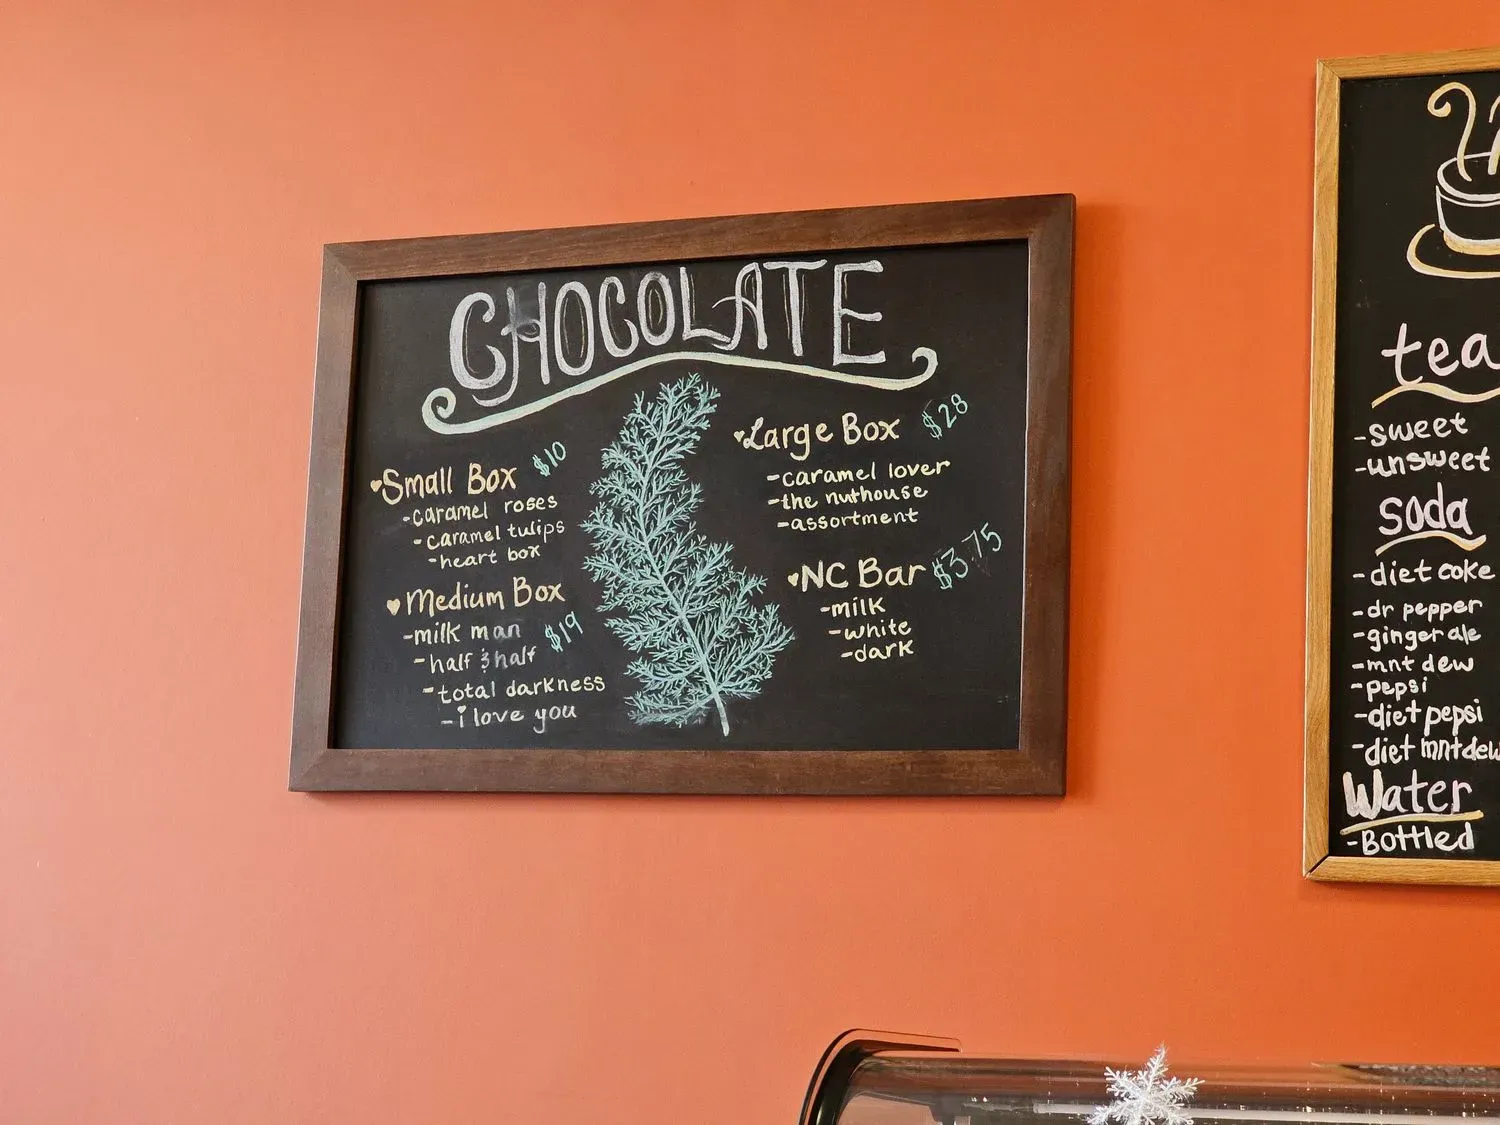 CHOCOLATE
Small Box $10
-caramel roses
-caramel tulips
-heart box
Medium Box $19
-milk man
-half & half
-total darkness
-i love you
Large Box $28
-caramel lover
-the nuthouse
-assortment
NC Bar $3.75
-milk
-white
-dark
tea
-sweet
-unsweet
soda
-diet coke
-dr pepper
-ginger ale
-mnt dew
-pepsi
-diet pepsi
-diet mnt dew
Water
-Bottled